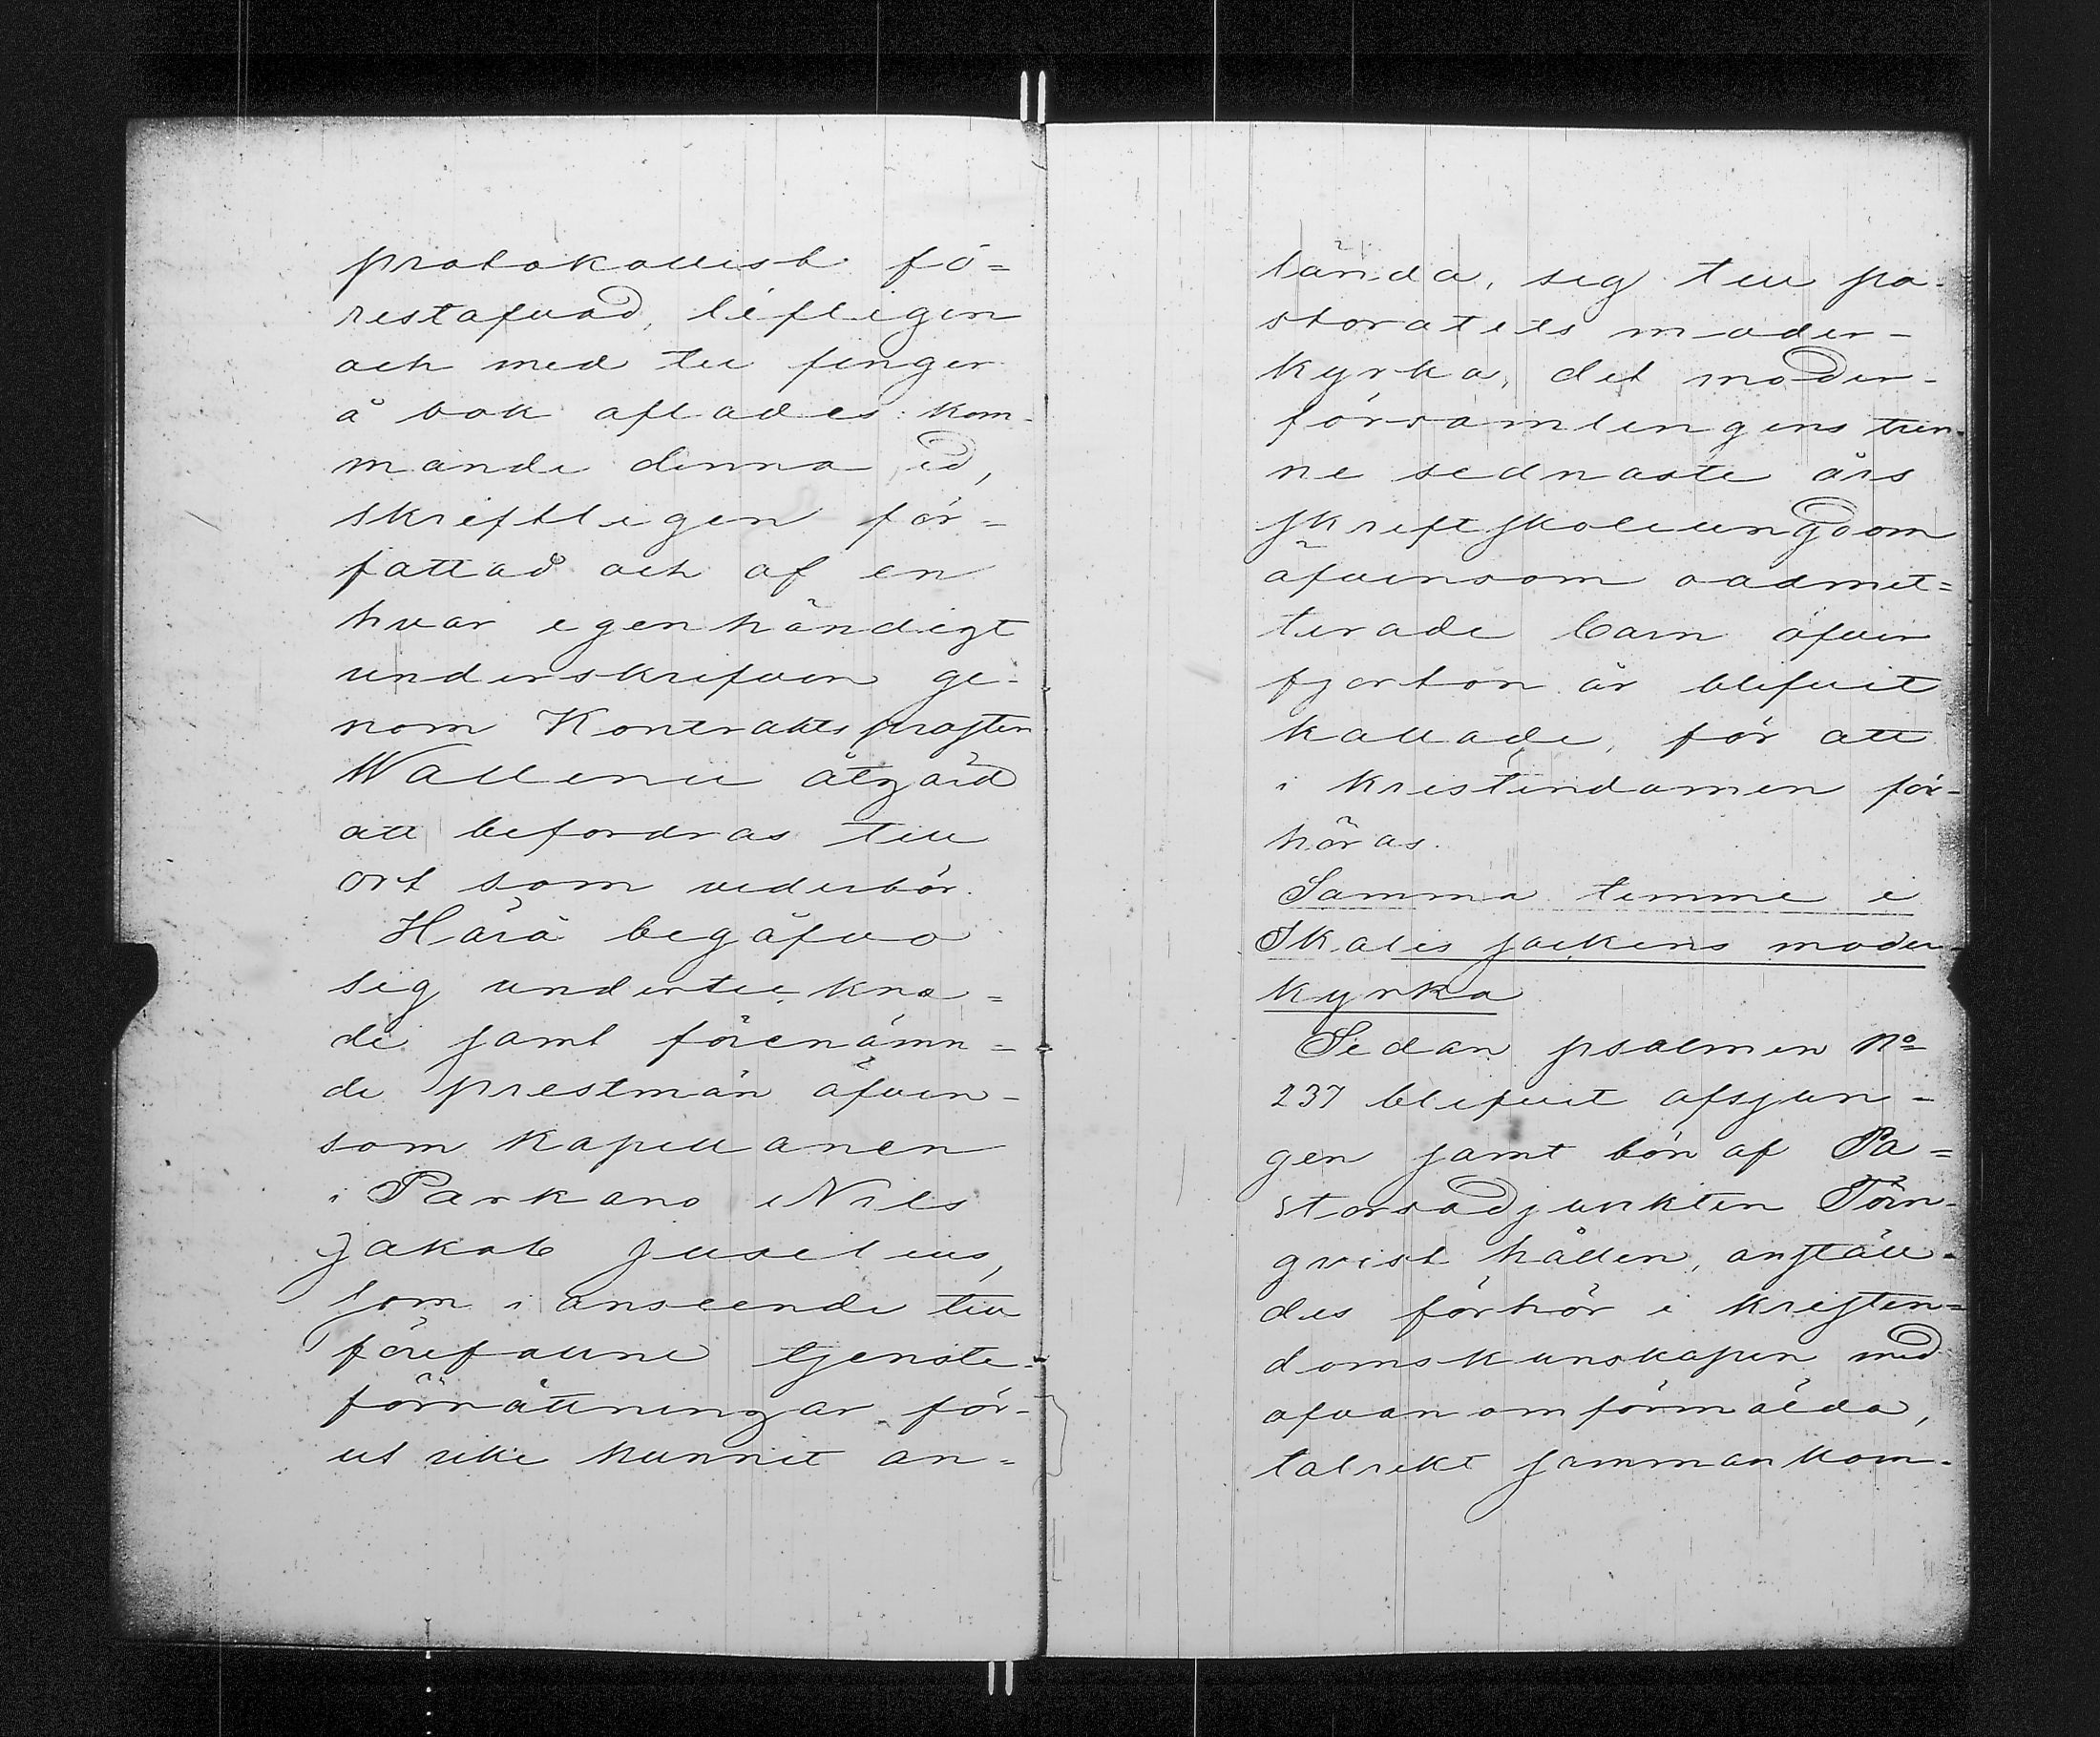 protokollist fö=
restafvad, lifligen
och med tu finger
å bok aflades: kom-
mande denna ed,
skriftligen för=
fattad och af en
hvar egenhändigt
underskrifven ge-
nom Kontraktsprosten
Wallenii åtgärd
att befordras till
ort som vederbör.
Härå begåfvo
sig underteckna=
de jämt förenämn=
de prestmän äfven-
som kapellanen
i Parkano Nils
Jakob Juselius,
som i anseende till
förefallne tjenste-
förrättningar för-
ut icke kunnit an=
lända, sig till pa-
storatets moder-
kyrka, dit moder-
församlingens tven-
ne sednaste års
skriftskoleungdom
äfvensom oadmit=
terade barn öfver
fjorton år blifvit
kallade, för att
i kristendomen för-
höras.
Samma timme i
Ikalis sockens moder-
kyrka
Sedan psalmen No
237 blifvit afsjun-
gen jämt bön af Pa=
storsadjunkten Törn-
qvist hållen, anställ-
des förhör i kristen=
domskunskapen med
ofvanomförmälda,
talrikt sammankom-